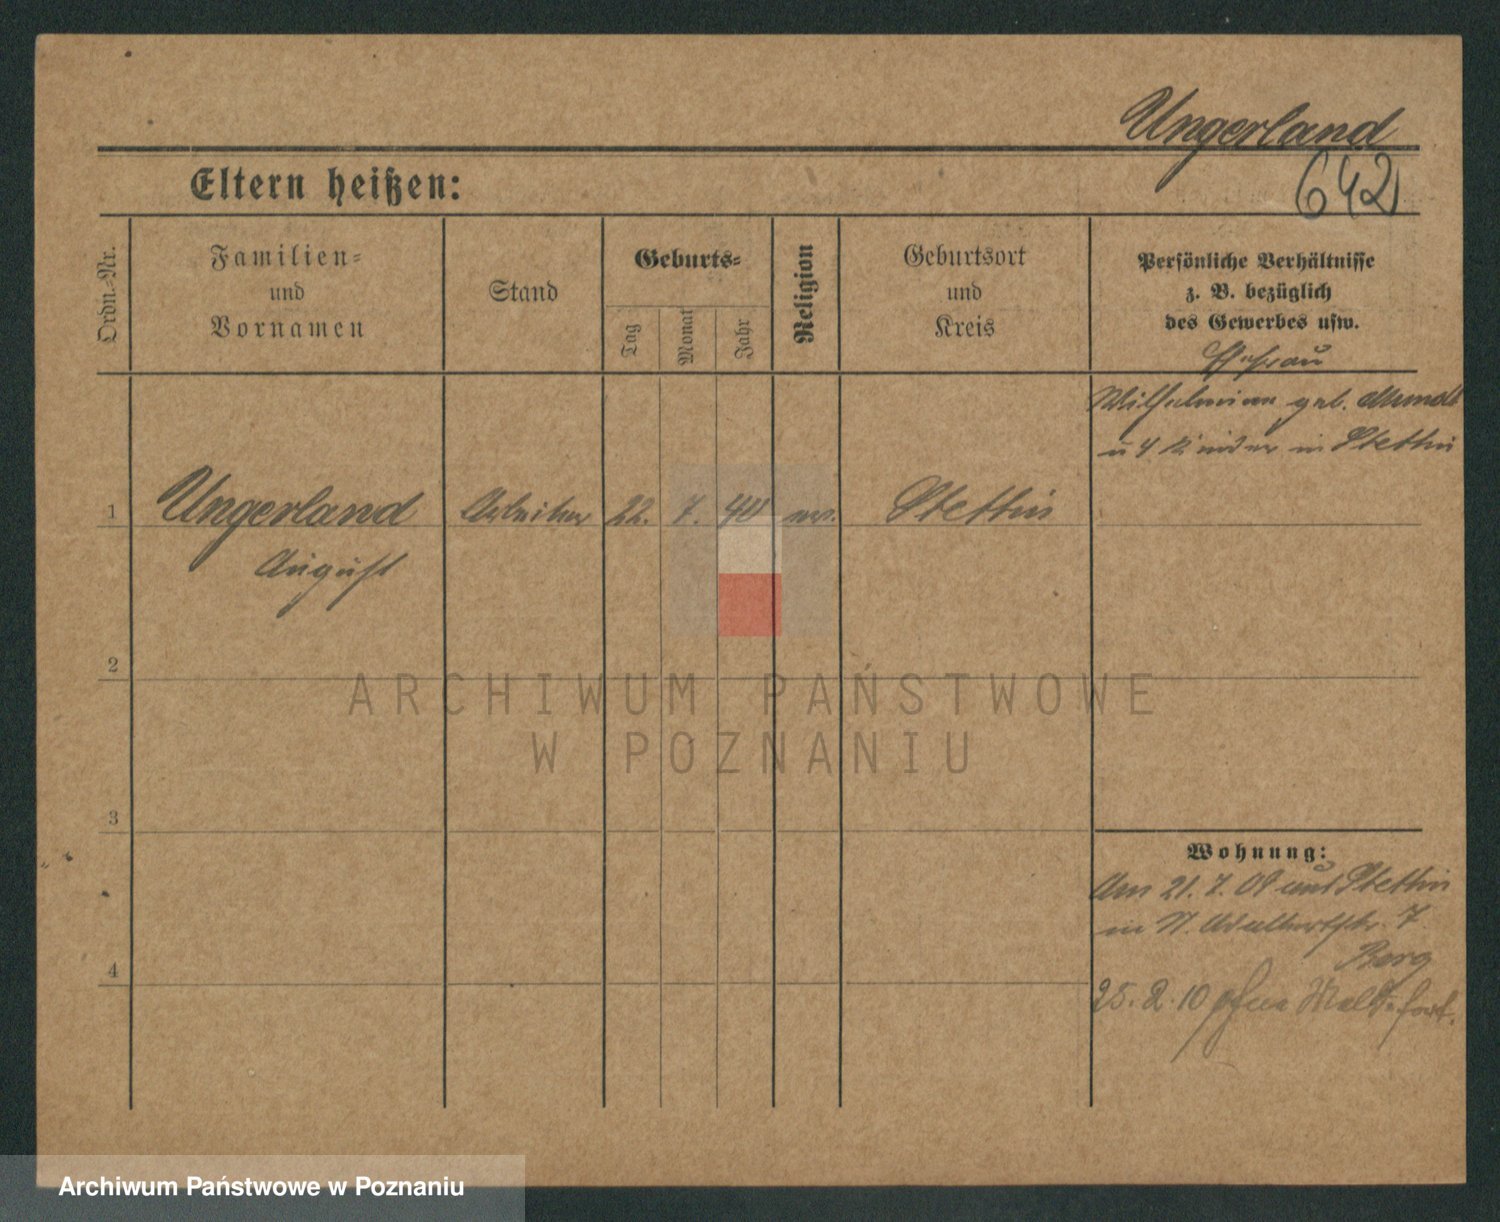 Ungerland
642
Eltern heißen:
Ordn.-Nr.
Familien-
und
Vornamen
Stand
Geburts-
Tag
Monat
Jahr
Religion
Geburtsort
und
Kreis
Persönliche Verhältnisse
z. B. bezüglich
des Gewerbes usw.
Ehefrau
Wilhelmine geb.
u 4 Kinder in Stettin
1 Ungerland Arbeiter 22. 7. ev. Stettin
August
2
3
4
Wohnung:
Am 21. 7. 09 aus Stettin
in St. Adalbertstr. 7.
Berg
25. 2. 10 ohne Meld. fort.
ARCHIWUM PAŃSTWOWE
W POZNANIU
Archiwum Państwowe w Poznaniu